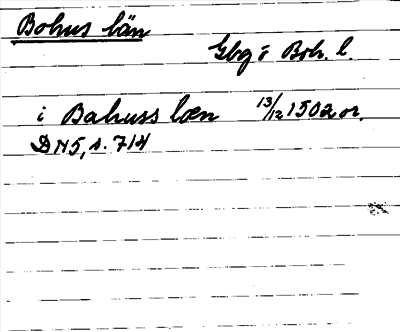 Bohus län
Gbg o Boh. l.
i Bahuss læn 13/12 1502 or.
DN5, s. 714